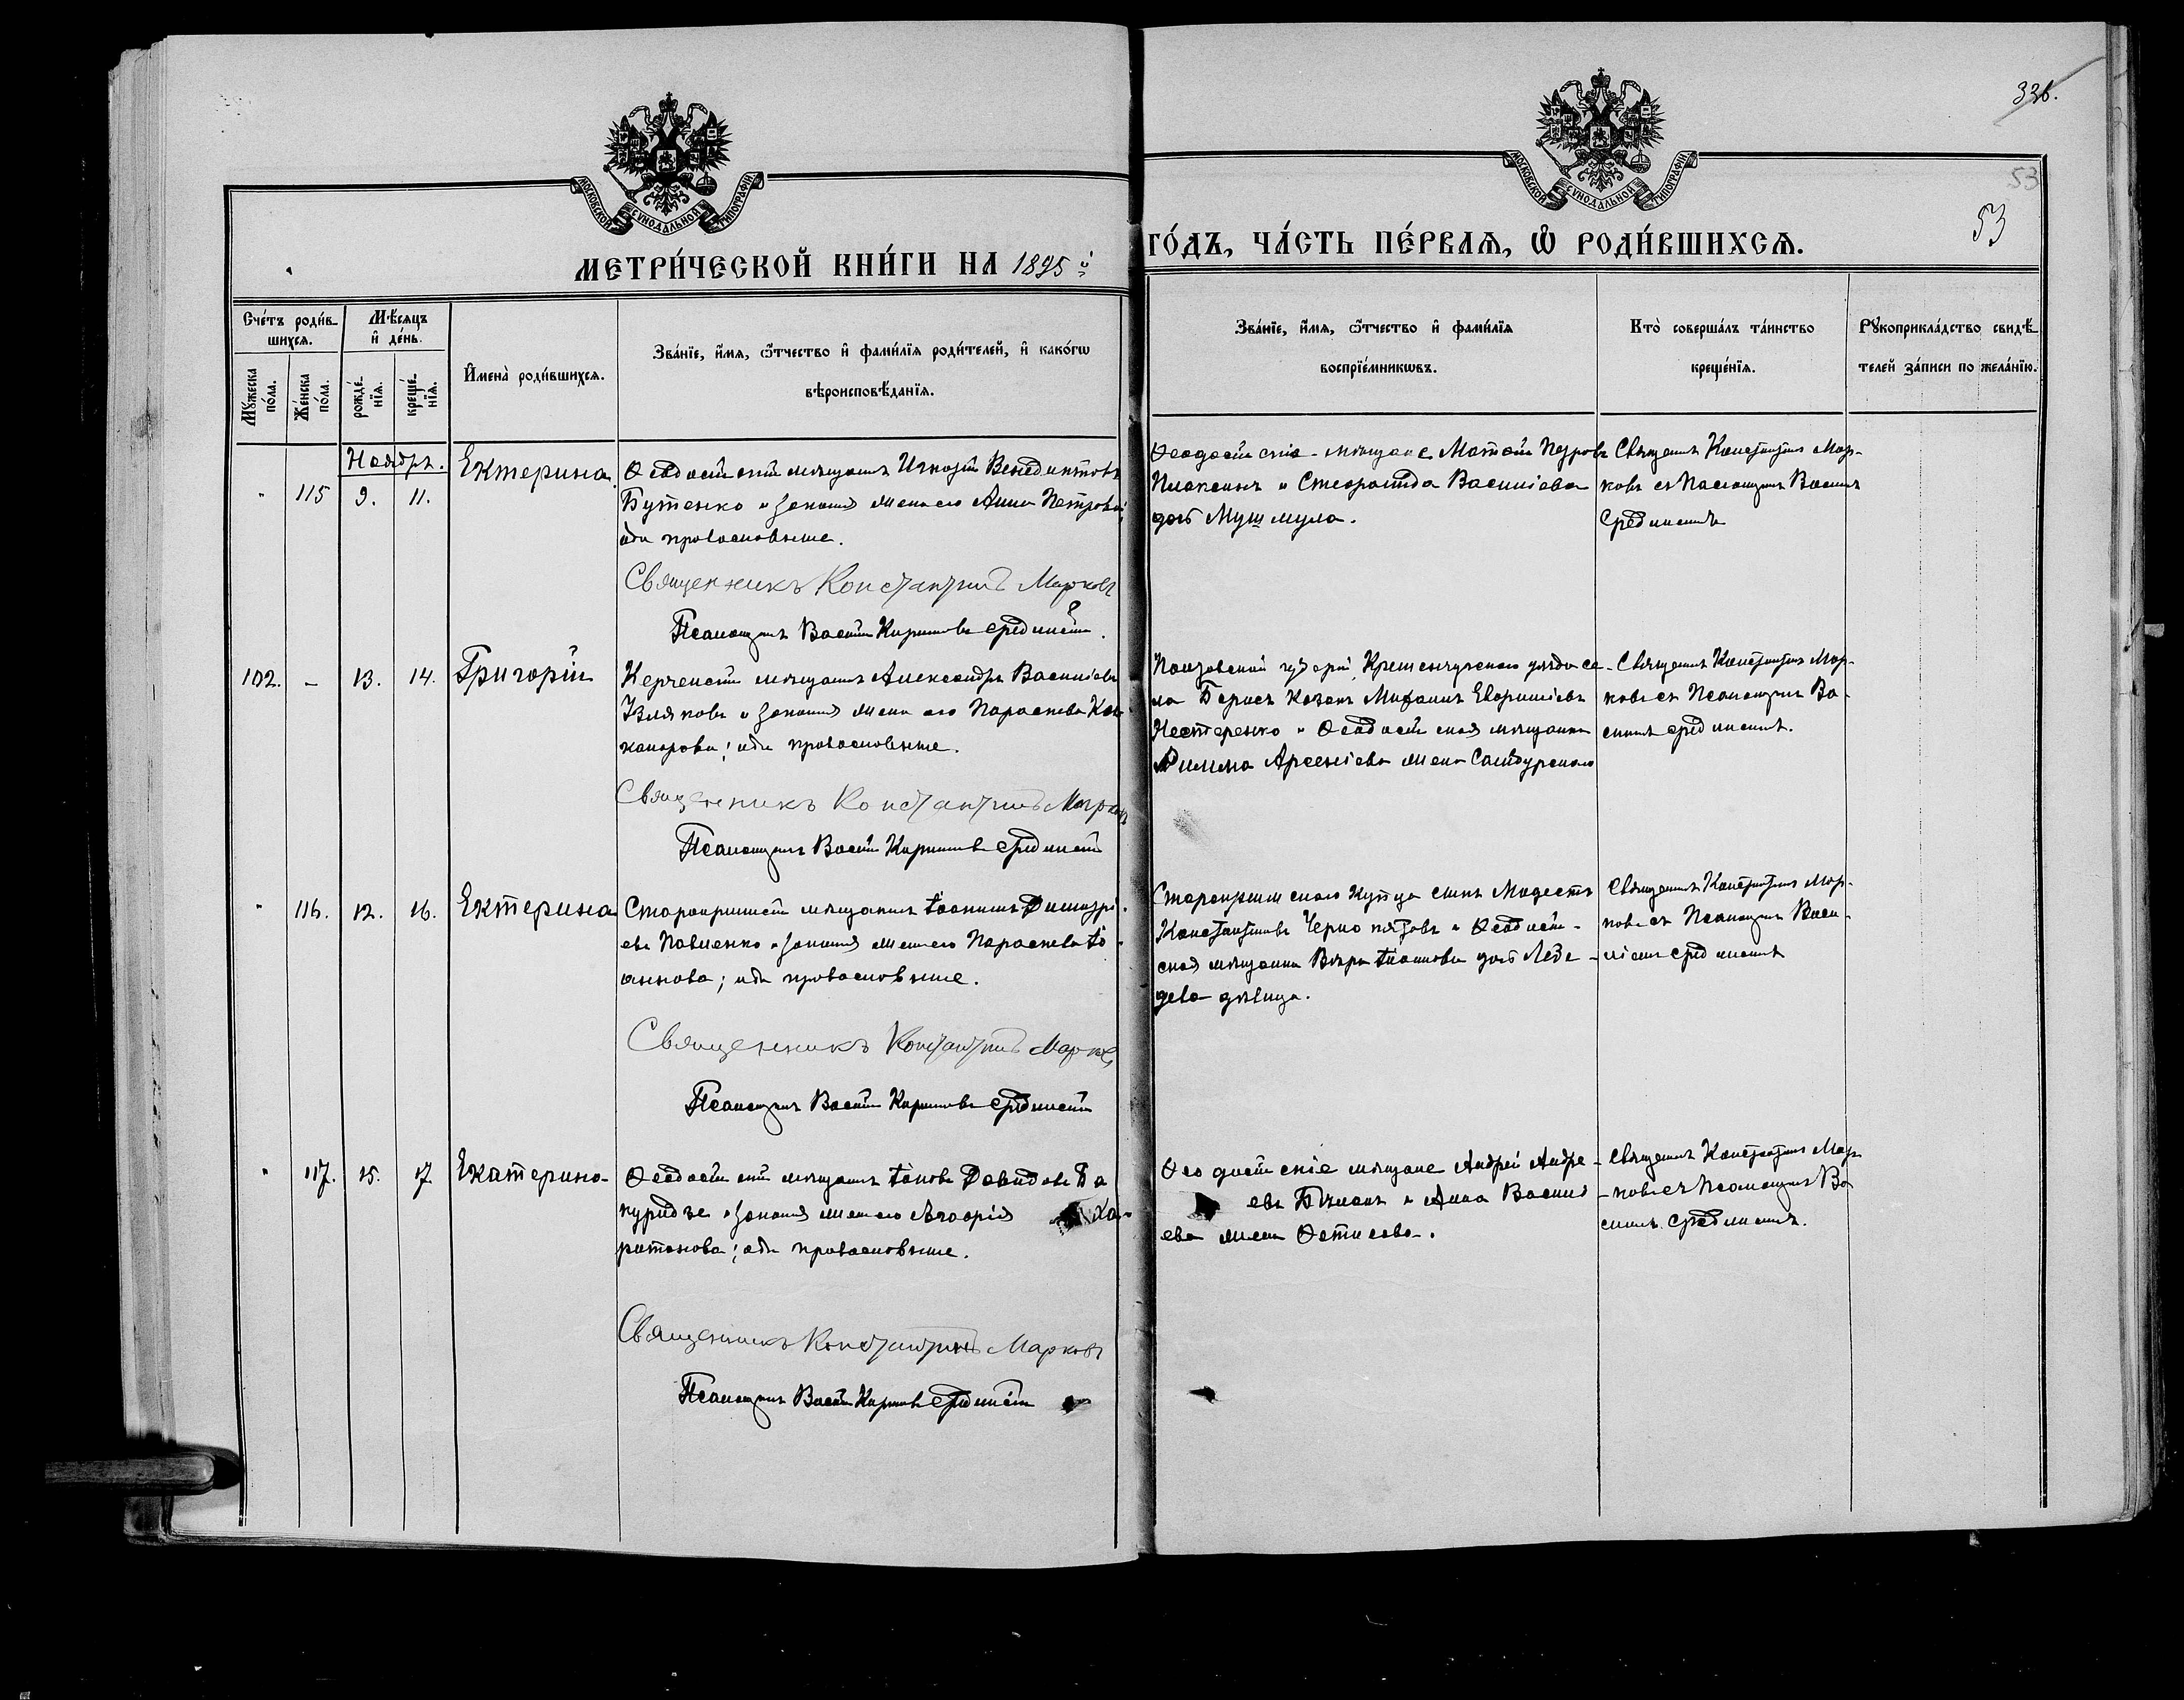 336.
53
53
МОСКОВСКОЙ СѴНОДАЛЬНОЙ ТИПОГРАФІИ
МОСКОВСКОЙ СѴНОДАЛЬНОЙ ТИПОГРАФІИ
МЕТРИ́ЧЕСКОЙ КНИ́ГИ НА 1895 й
ГО́ДЪ, ЧА́СТЬ ПЕ́РВАѦ, Ѡ҆ РОДИ́ВШИХСѦ.
Сче́тъ роди́в-
шихсѧ.
Мѣ́сѧцъ
и҆ де́нь.
Мꙋ́жеска
по́ла.
Же́нска
по́ла.
рожде́-
нїѧ.
креще́-
нїѧ.
И҆мена̀ роди́вшихсѧ.
Зва́нїе, и҆́мѧ, ѻ҆́тчество и҆ фами́лїѧ роди́телей, и҆ како́гѡ
вѣроисповѣ́данїѧ.
Зва́нїе, и҆́мѧ, ѻ҆́тчество и҆ фами́лїѧ
воспрїе́мникѡвъ.
Кто̀ соверша́лъ та́инство
креще́нїѧ.
Рꙋкоприкла́дство свидѣ́-
телей за́писи по жела́нїю.
Ноябрь.
" 115 9. 11. Ектерина
Ѳеодосійскій мѣщанинъ Игнатій Венедиктовъ
Бутенко и законная жена его Анна Петрова;
оба православные.
Священникъ Константинъ Марковъ
Псаломщикъ Василій Кирилловъ
Ѳеодосійскіе мѣщане Матѳей Петровъ
Плаксинъ и Стефанида Василіева
дочь Мушмула.
Священникъ Константинъ Мар-
ковъ съ Псаломщикъ Василъ
102. – 13. 14. Григорій
Керченскій мѣщанинъ Александръ Василіевъ
Изляковъ и законная жена его Параскева Ни-
канорова; оба православные.
Священникъ Константинъ Марковъ
Псаломщикъ Василій Кирилловъ
Полтавской губерніи, Кременчугскаго уѣзда се-
ла Козакъ Михаилъ
Нестеренко и Ѳеодосійская мѣщанка
Римма Арсеніева жена
Священникъ Константинъ Мар-
ковъ съ Псаломщикъ Ва-
" 116. 12. 16. Ектерина
Старокрымскій мѣщанинъ Іоаннъ Димитрі-
евъ Павленко и законная жена его Параскева Іо-
аннова; оба православные.
Священникъ Константинъ Марковъ
Псаломщикъ Василій Кирилловъ
Старокрымскаго Купца сынъ Модестъ
Константиновъ и Ѳеодосій-
ская мѣщанка Вѣра Іоаннова дочь Лебе-
дева дѣвица.
Священникъ Константинъ Мар-
ковъ съ Псаломщикъ Васи-
" 117. 15. 17. Екатерина
Ѳеодосійскій мѣщанинъ Іаковъ Давидовъ Ба
куридзе и законная жена его Ха-
ритонова; оба православные.
Священникъ Константинъ Марковъ
Псаломщикъ Василій Кирилловъ
Ѳеодосійскіе мѣщане Андрей Андре-
евъ и Анна Васил
ева жена
Священникъ Константинъ Мар
ковъ съ Псаломщикъ Ва